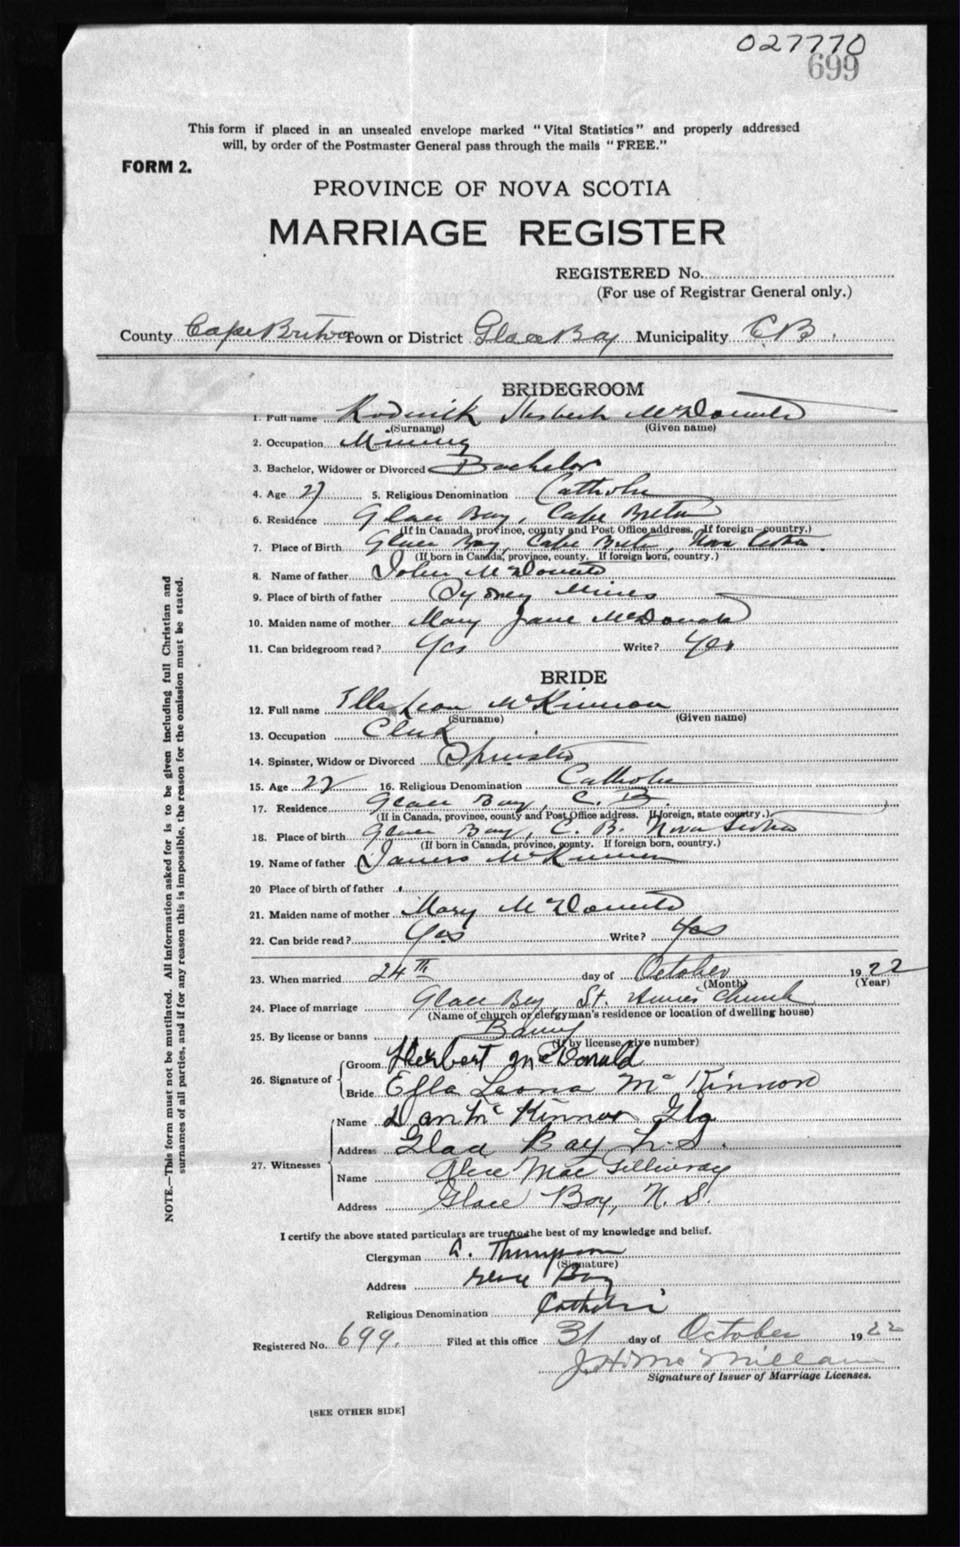 027770
699
This form if placed in an unsealed envelope marked "Vital Statistics" and properly addressed
will, by order of the Postmaster General pass through the mails "FREE."
FORM 2.
PROVINCE OF NOVA SCOTIA
MARRIAGE REGISTER
REGISTERED No.
(For use of Registrar General only.)
County Cape Breton Town or District Glace Bay Municipality C.B.
BRIDEGROOM
1. Full name Roderick Herbert McDonald
(Surname) (Given name)
2. Occupation Mining
3. Bachelor, Widower or Divorced Bachelor
4. Age 27 5. Religious Denomination Catholic
6. Residence Glace Bay, Cape Breton
(If in Canada, province, county and Post Office address. If foreign country.)
7. Place of Birth Glace Bay, Cape Breton, Nova Scotia.
(If born in Canada, province, county. If foreign born, country.)
8. Name of father John McDonald
9. Place of birth of father Sydney Mines
10. Maiden name of mother Mary Jane McDonald
11. Can bridegroom read? Yes Write? Yes
BRIDE
12. Full name Leona McKinnon
(Surname) (Given name)
13. Occupation Clerk
14. Spinster, Widow or Divorced Spinster
15. Age 22 16. Religious Denomination Catholic
17. Residence Glace Bay, C. B.
(If in Canada, province, county and Post Office address. If foreign, state country.)
18. Place of birth Glace Bay, C. B. Nova Scotia
(If born in Canada, province, county. If foreign born, country.)
19. Name of father James McKinnon
20 Place of birth of father
21. Maiden name of mother Mary McDonald
22. Can bride read? Yes Write? Yes
23. When married 24th day of October 1922
(Month) (Year)
24. Place of marriage Glace Bay, St. Annes Church
(Name of church or clergyman's residence or location of dwelling house)
25. By license or banns Banns
(If by license, give number)
26. Signature of Groom Herbert McDonald
Bride Effa Leona McKinnon
27. Witnesses
Name Dan McKinnon
Address Glace Bay N.S.
Name Alice MacGillivray
Address Glace Bay, N. S.
I certify the above stated particulars are true to the best of my knowledge and belief.
Clergyman A. Thompson
(Signature)
Address Glace Bay
Religious Denomination Catholic
Registered No. 699. Filed at this office 31 day of October 1922
J. H. McMillan
Signature of Issuer of Marriage Licenses.
[SEE OTHER SIDE]
NOTE.—This form must not be mutilated. All information asked for is to be given including full Christian and
surnames of all parties, and if for any reason this is impossible, the reason for the omission must be stated.